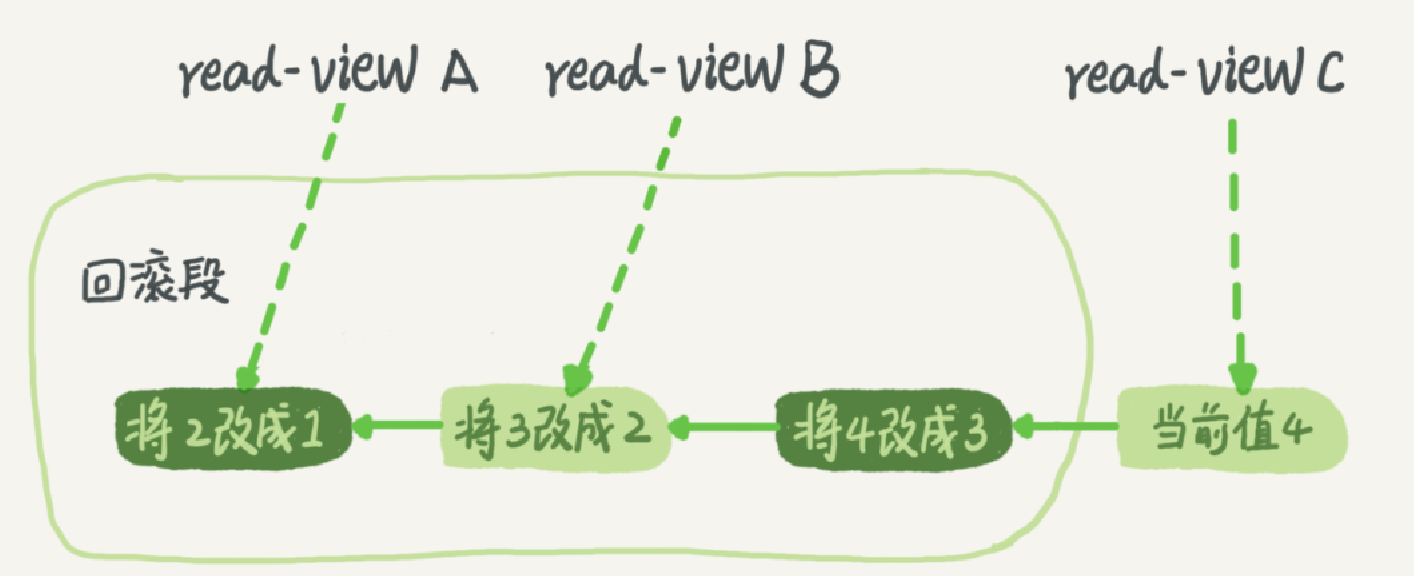 read-view A
read-view B
read-view C
回滚段
将2改成1
将3改成2
将4改成3
当前值4